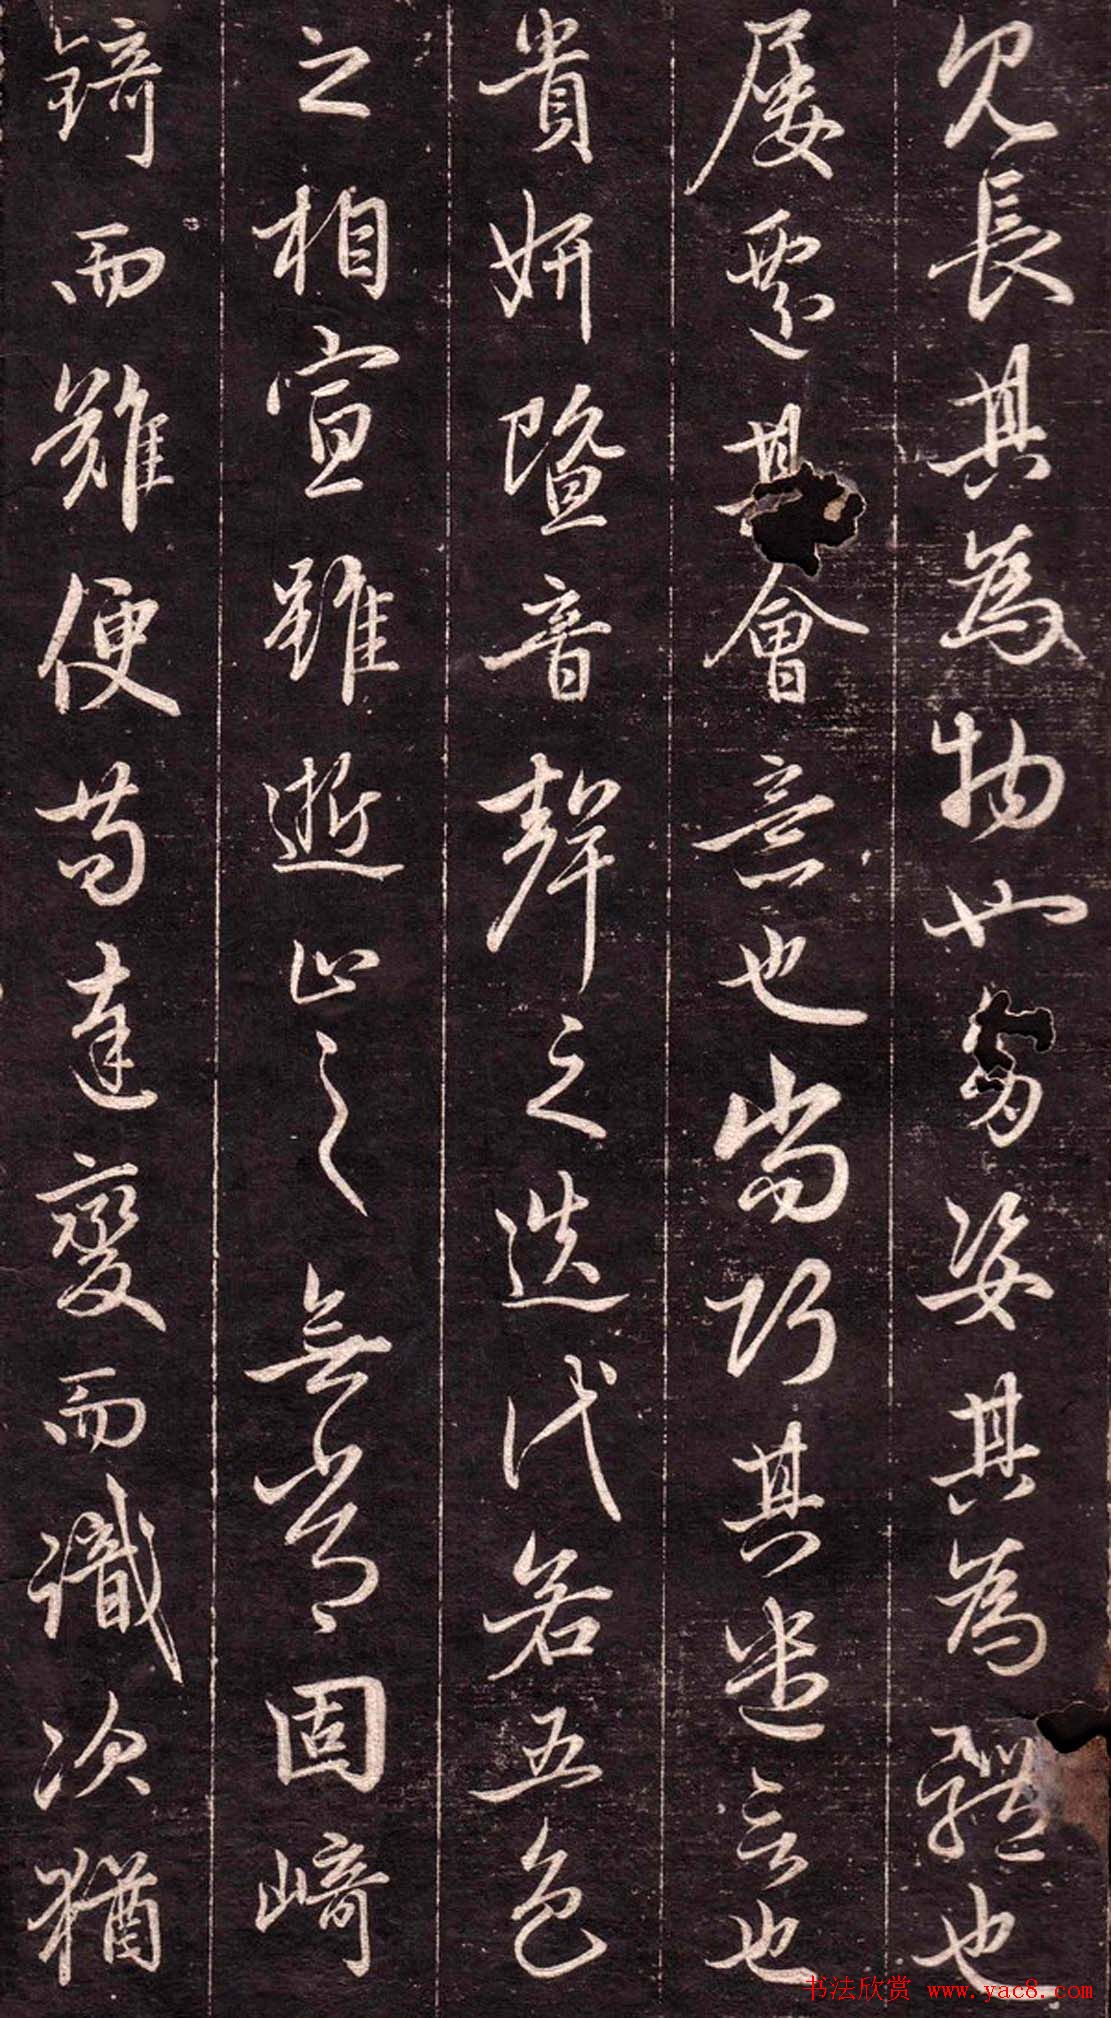 冗長其為物也多姿其為體也
屢遷其會意也尚巧其遣言也
貴妍暨音聲之迭代若五色
之相宣雖逝止之無常固崎
錡而難便苟達變而識次猶
书法欣赏 www.yac8.com